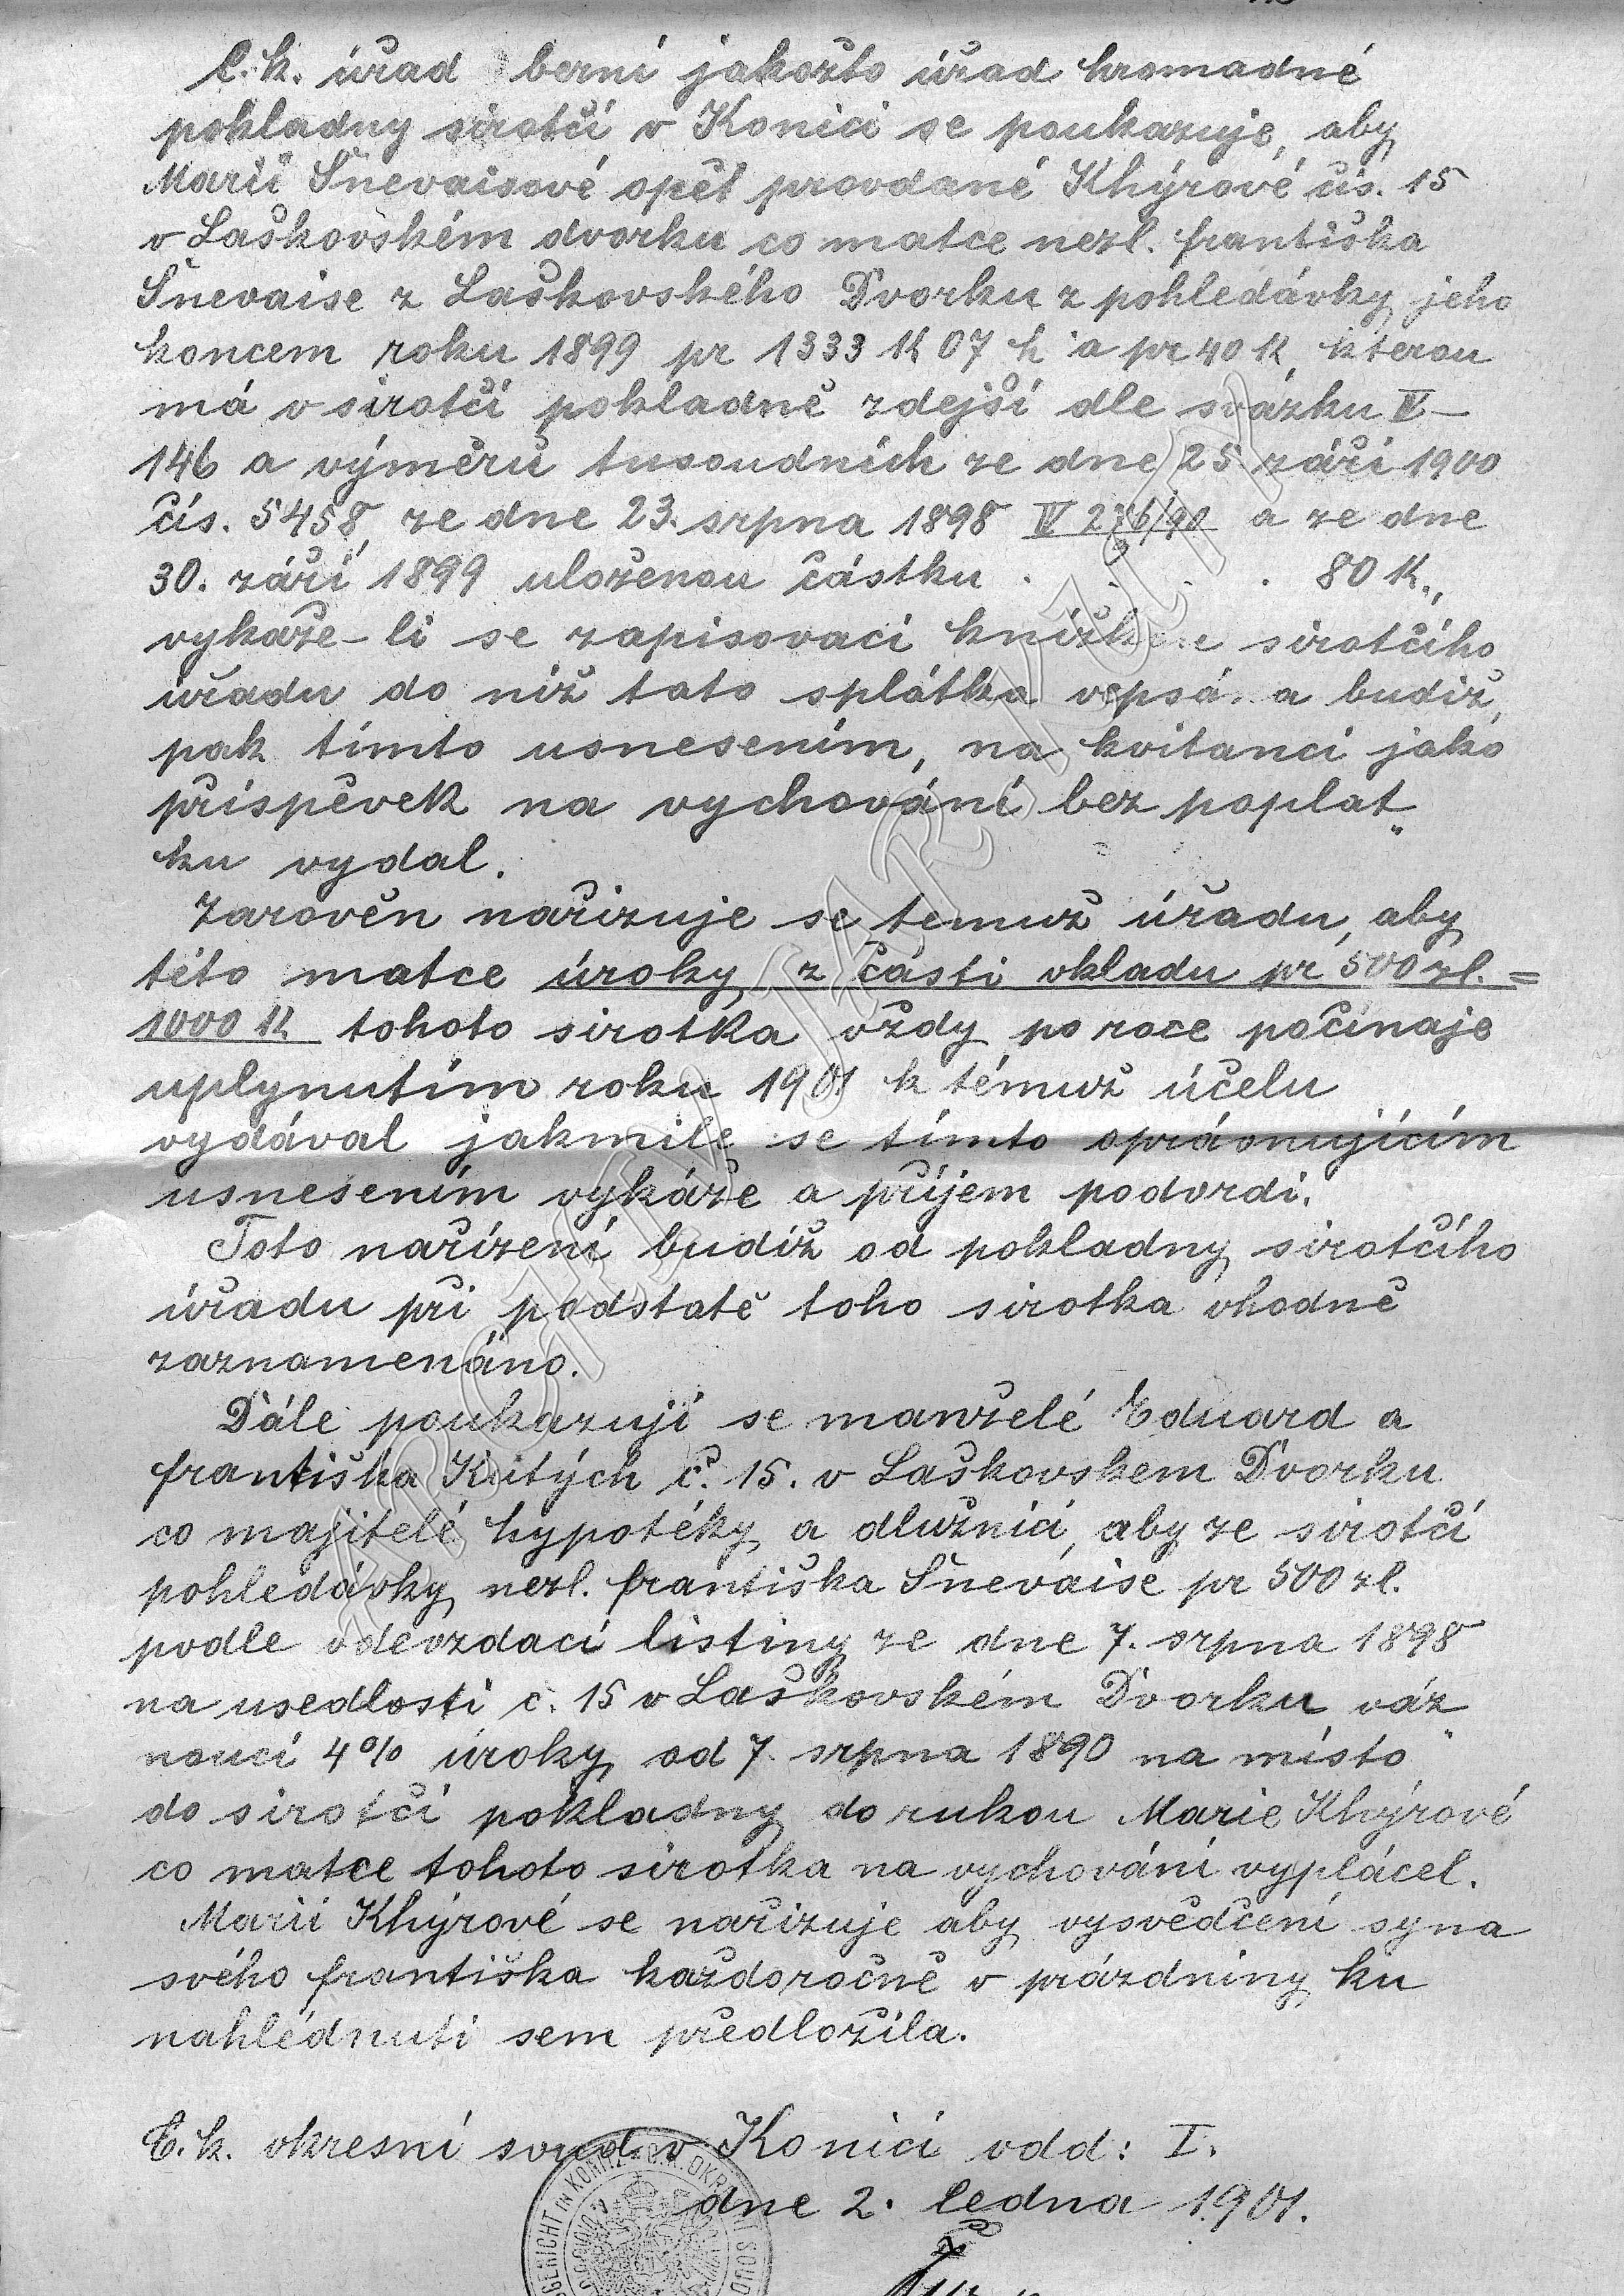 C.k. úřad berní jakožto úřad hromadné
pokladny sirotčí v Konici se poukazuje, aby
Marii Šnevaisové opět provdané Khýrové čís. 15
v Laškovském dvorku co matce nezl. františka
Šnevaise z Laškovského Dvorku z pohledávky jeho
koncem roku 1899 pr 1333 K 07 h a pr 40 K, kterou
má v sirotčí pokladně zdejší dle svazku IV –
146 a výměrů tusoudních ze dne 25 září 1900
čís. 5458, ze dne 23. srpna 1898 IV a ze dne
30. září 1899 uloženou částku . . . . 80 K.,
vykáže-li se zapisovací knížkou sirotčího
úřadu do níž tato splátka vepsána budiž,
pak tímto usnesením, na kvitanci jako
příspěvek na vychování bez poplat„
ku vydal.
Zarověn nařizuje se temuž úřadu, aby
této matce úroky z části vkladu pr 500 zl. =
1000 K tohoto sirotka vždy po roce počínaje
uplynutím roku 1901 k témuž účelu
vydával jakmile se tímto oprávnujícím
usnesením vykáže a příjem podvrdí.
Toto nařízení budiž od pokladny sirotčího
úřadu při podstatě toho sirotka vhodně
zaznamenáno.
Dále poukazují se manželé Eduard a
františka Kutých č. 15. v Laškovskem Dvorku
co majitelé hypotéky a dlužníci, aby ze sirotčí
pohledávky nezl. františka Šneváise pr 500 zl.
podle odevzdací listiny ze dne 7. srpna 1898
na usedlosti č. 15 v Laškovském Dvorku váz„
noucí 4% úroky od 7. srpna 1890 na místo
do sirotčí pokladny do rukou Marie Khýrové
co matce tohoto sirotka na vychování vyplácel.
Marii Khýrové se nařizuje aby vysvědčení syna
svého františka každoročně v prázdniny ku
nahlédnutí sem předložila.
C.k. okresní soud v Konici odd: I.
dne 2. ledna 1901.